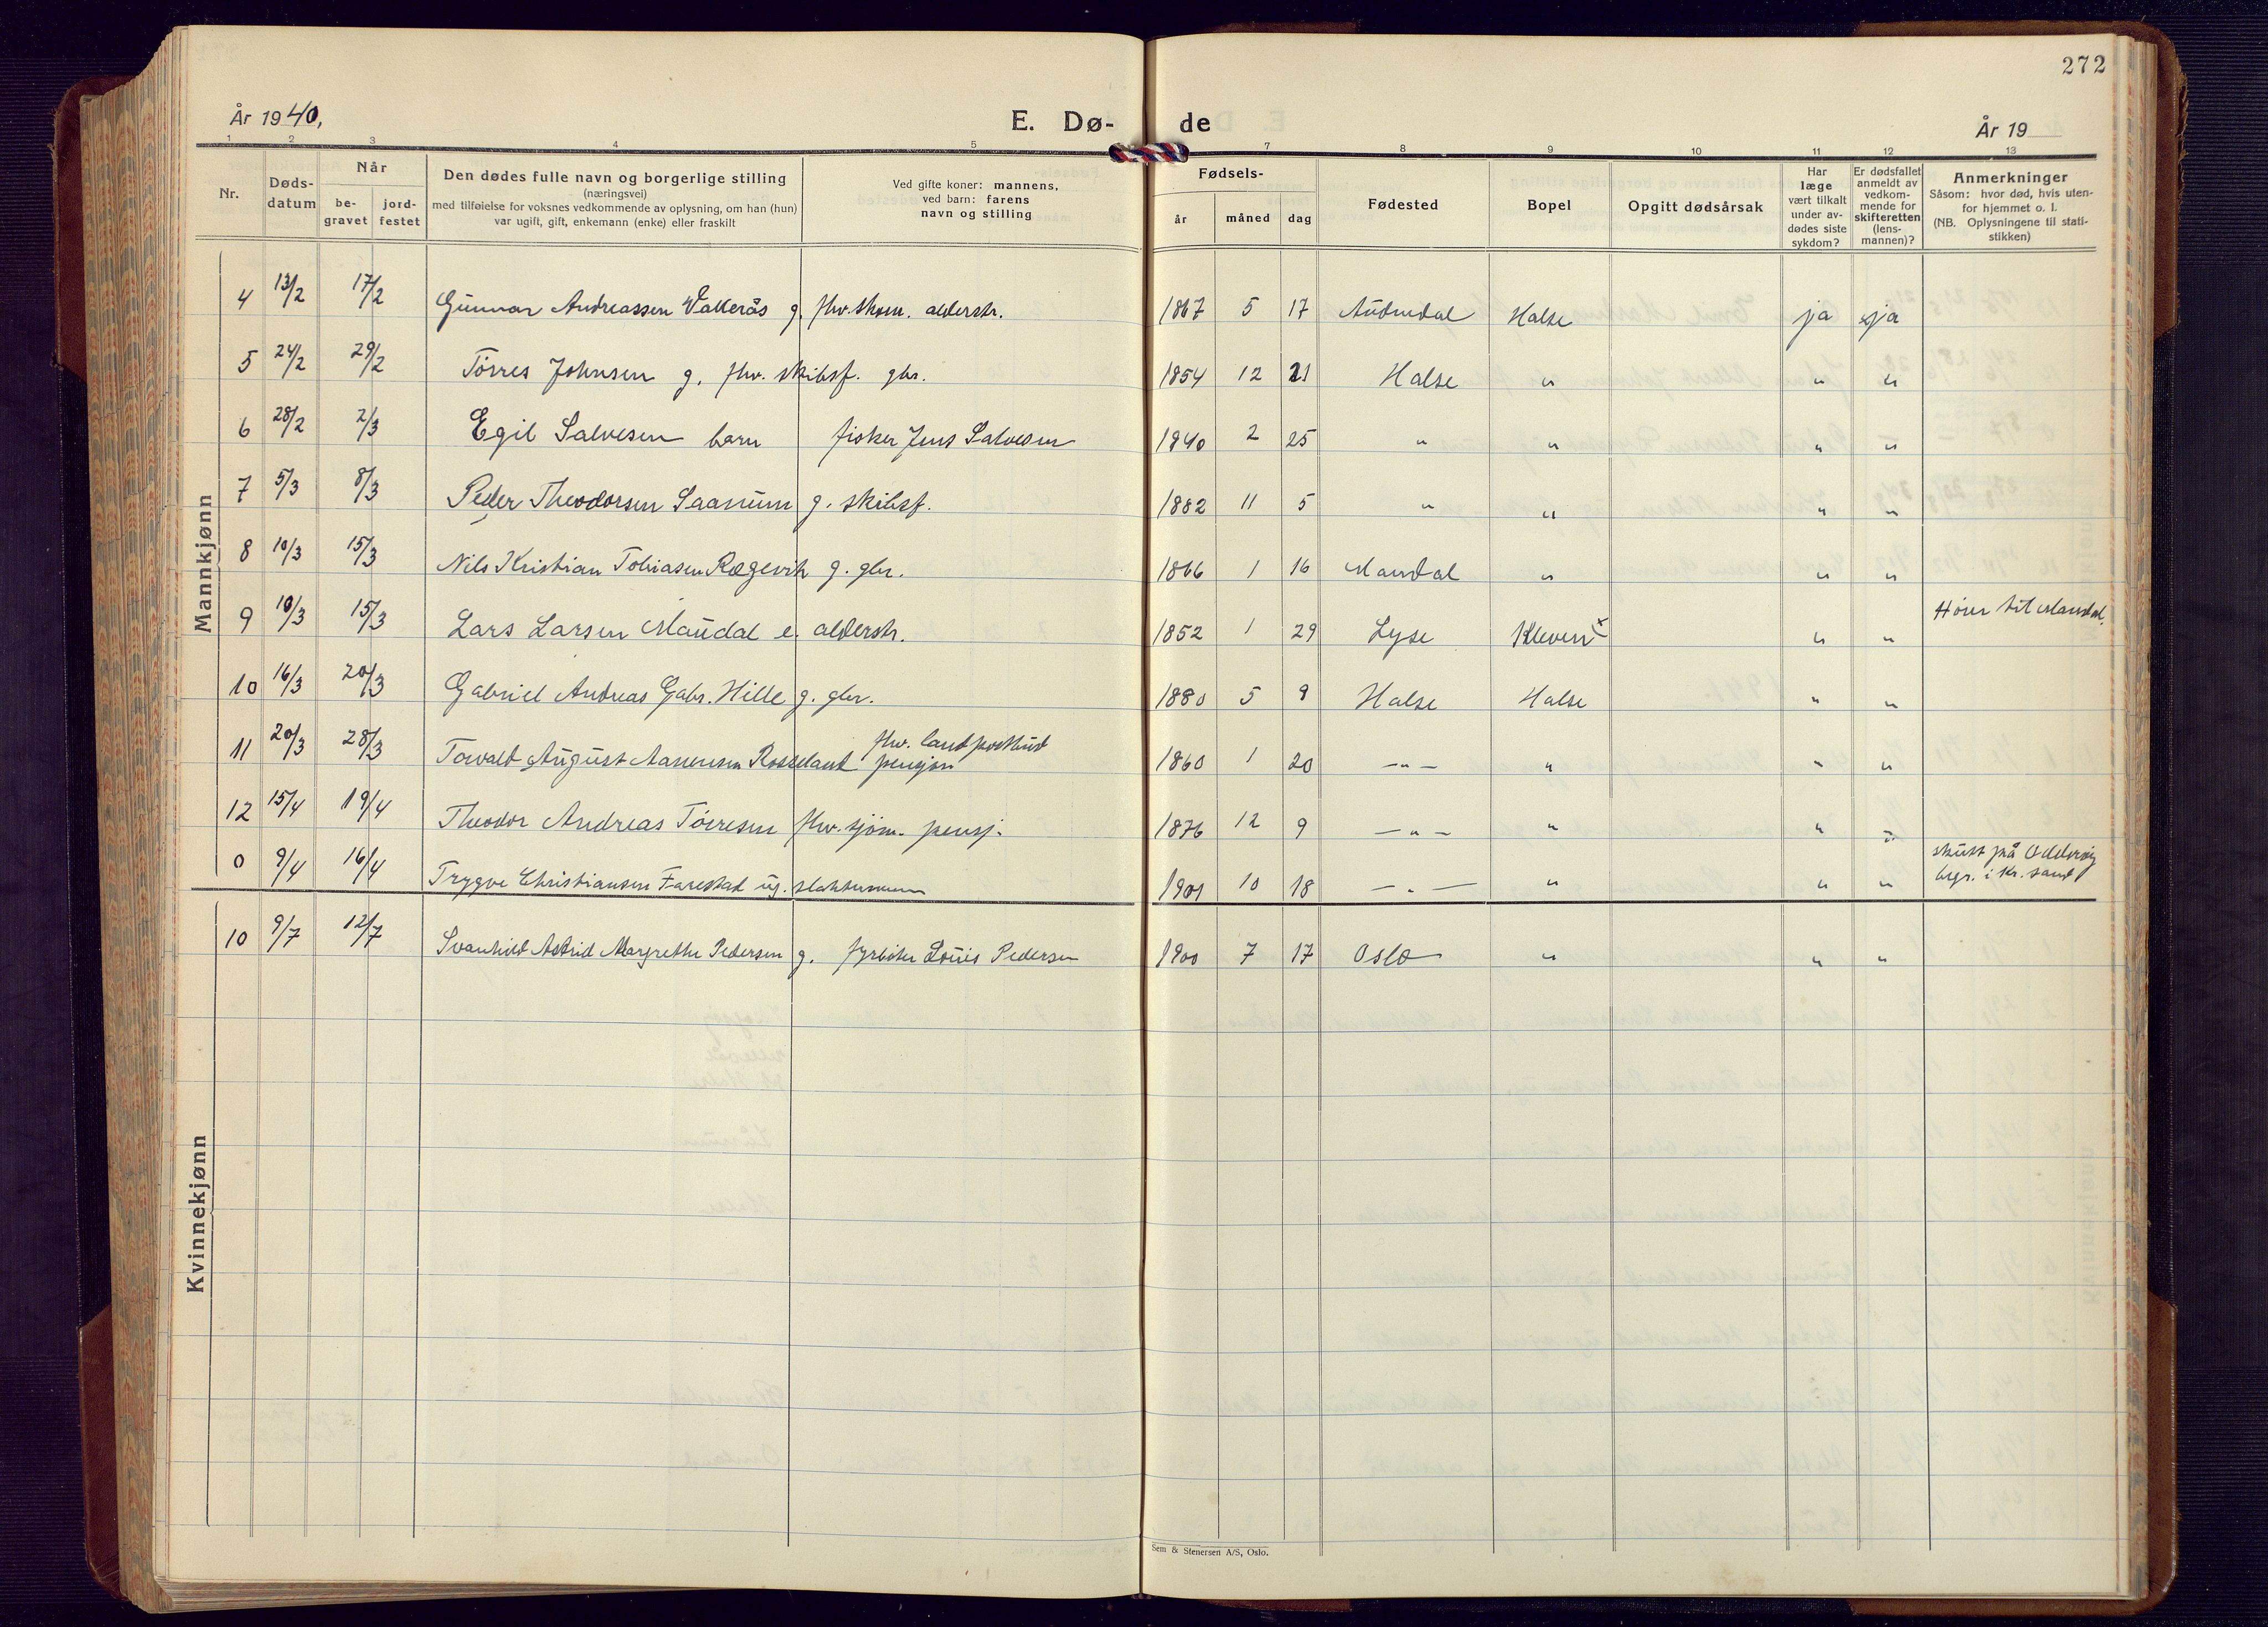 272
År 1940,
E. Dø-
de
År 19
1 2 3 4 5 7 8 9 10 11 12 13
Nr.
Døds-
datum
Når
be-
gravet
jord-
festet
Den dødes fulle navn og borgerlige stilling
(næringsvei)
med tilføielse for voksnes vedkommende av oplysning, om han (hun)
var ugift, gift, enkemann (enke) eller fraskilt
Ved gifte koner: mannens,
ved barn: farens
navn og stilling
Fødsels-
år
måned
dag
Fødested
Bopel
Opgitt dødsårsak
Har
læge
vært tilkalt
under av-
dødes siste
sykdom?
Er dødsfallet
anmeldt av
vedkom-
mende for
skifteretten
(lens-
mannen)?
Anmerkninger
Såsom: hvor død, hvis uten-
for hjemmet o. l.
(NB. Oplysningene til stati-
stikken)
Mannkjønn
4 13/2 17/2 Gunnar Andreassen Vallerås g. fhv. skom. alderstr. 1867 5 17 Audnedal Halse ja ja
5 24/2 29/2 Tørres Johnsen g. fhv. skibsf. gbr. 1854 12 21 Halse " " "
6 28/2 2/3 Egil Salvesen barn fisker Jens Salvesen 1940 2 25 " " " "
7 5/3 8/3 Peder Theodorsen Saanum g. skibsf. 1882 11 5 " " " "
8 10/3 15/3 Nils Kristian Tobiasen Rægevik g. gbr. 1866 1 16 Mandal " " "
9 10/3 15/3 Lars Larsen Maudal e. alderstr. 1852 1 29 Lyse Kleven x " " Hører til Mandal.
10 16/3 20/3 Gabriel Andreas Gabr. Hille g. gbr. 1880 5 9 Halse Halse " "
11 20/3 28/3 Torvald August Aanensen Rosseland fhv. landpostbud
pensjon 1860 1 20 — " — " " "
12 15/4 19/4 Theodor Andreas Tørresen fhv. sjøm. pensj. 1876 12 9 — " — " " "
0 9/4 16/4 Trygve Christiansen Farestad ug. slakter 1901 10 18 — " — " " " skutt på Odderøy
begr. i Kr. sand
Kvinnekjønn
10 9/7 12/7 Svanhild Astrid Margrethe Pedersen g. fyrbøter Louis Pedersen 1900 7 17 Oslo " " "
Sem & Stenersen A/S, Oslo.